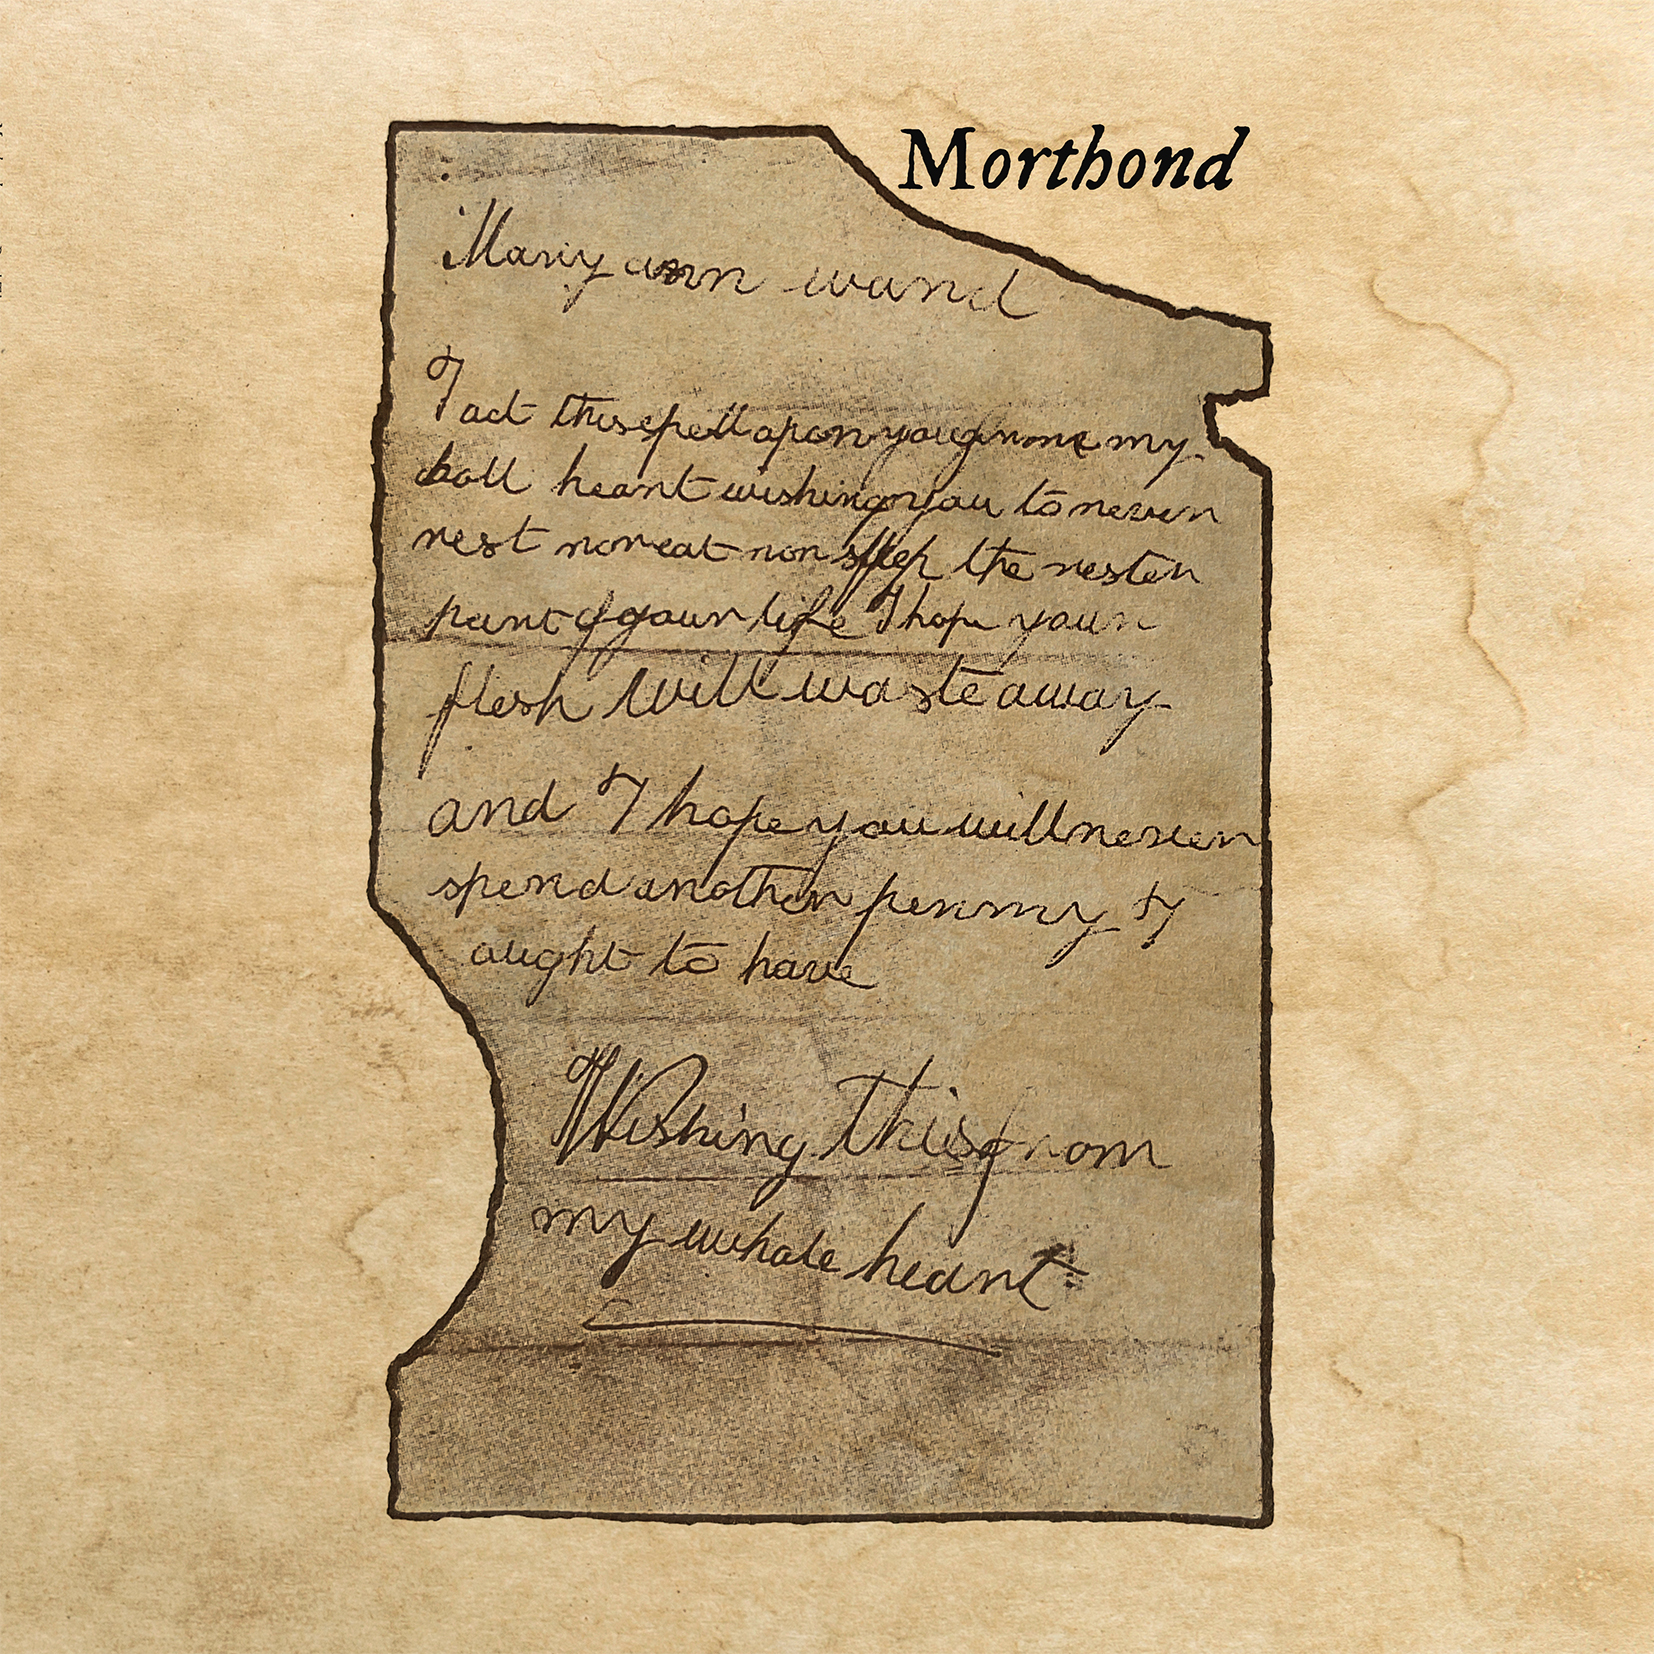 Morthond
Mary ann ward
I act this spell upon you from my
holl heart wishing you to never
rest nor eat nor sleep the rester
part of your life I hope your
flesh will waste away
and I hope you will never
spend another penny I
ought to have
Wishing this from
my whole heart